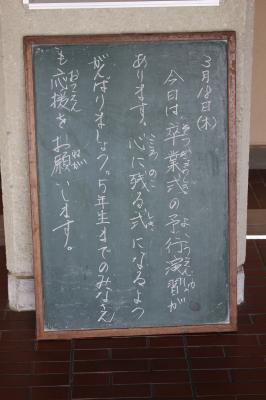 3月18日(木)
今日は卒業式の予行演習が
あります。心に残る式になるよう
がんばりましょう。5年生までのみなさん
も応援をお願いします。